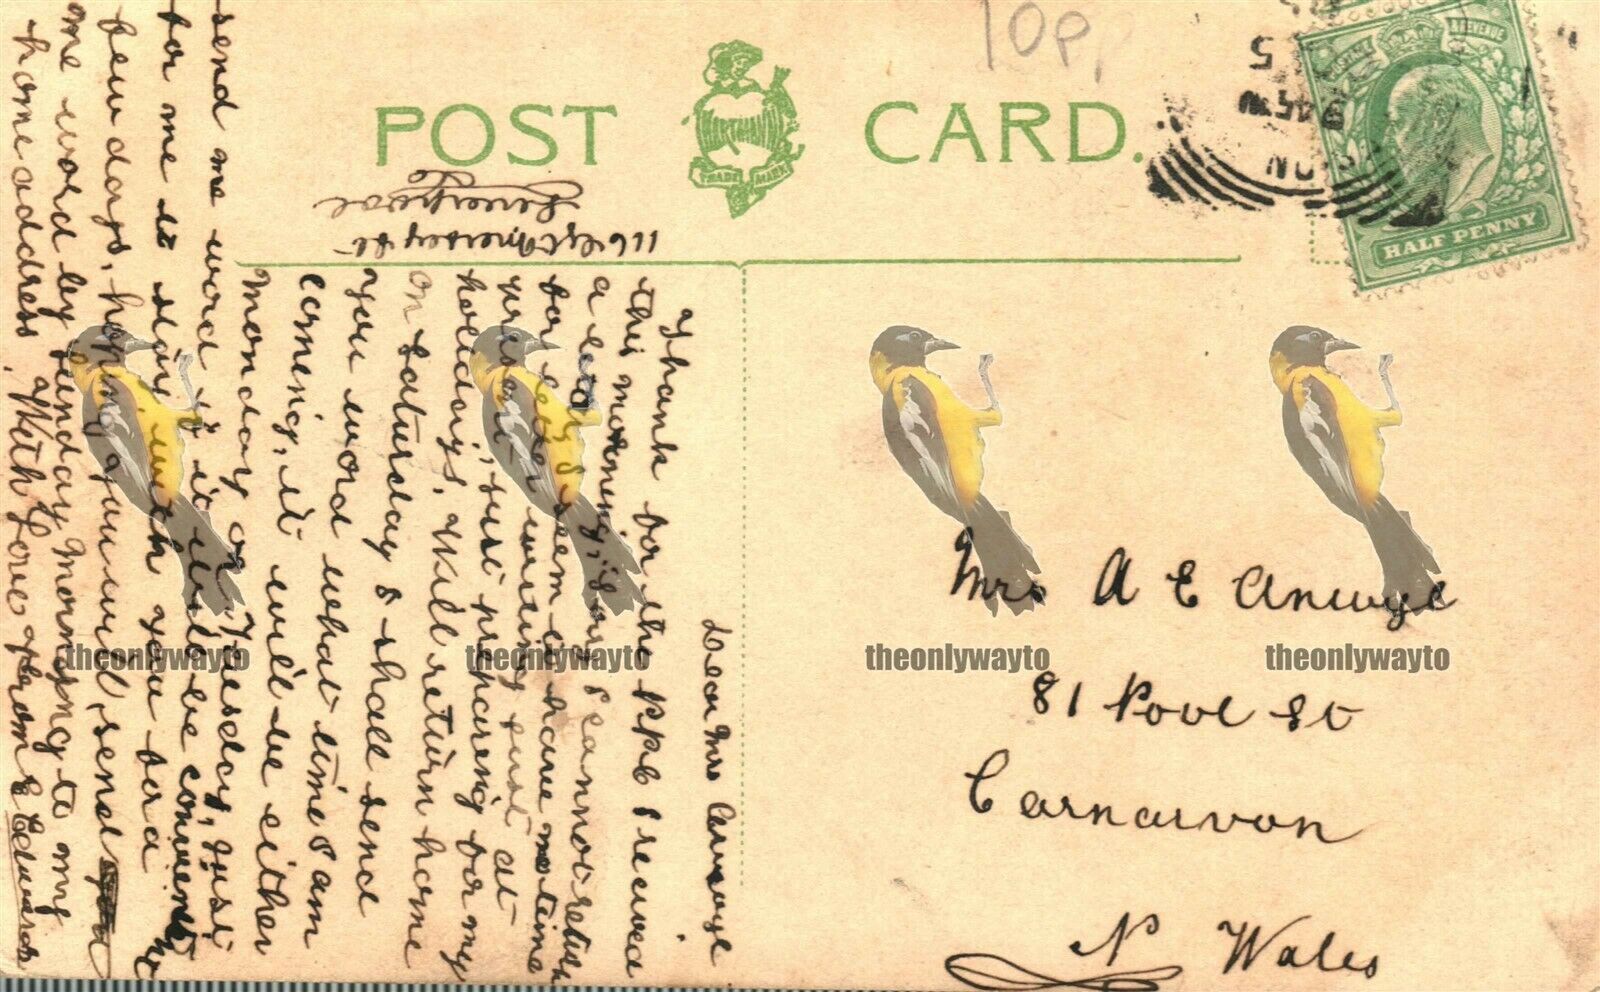 10p
POST CARD.
HARTMANN
TRADE MARK
POSTAGE REVENUE
HALF PENNY
Liverpool
Dear Mrs Anwyl
Thank for the PPC I received
this morning, sorry I cannot return
a
for I seem to have no time
for letter writing just at
present, just preparing for my
holidays, Will return home
on Saturday & shall send
you word what time I am
coming, it will be either
Monday or Tuesday, just
send me word if it will be convenient
for me to stay with you for a
few days, hoping you will send
me word by Sunday morning to my
home address, With Love from E Edwards
Mrs A E Anwyl
81 Pool St
Carnarvon
N Wales
theonlywayto
theonlywayto
theonlywayto
theonlywayto